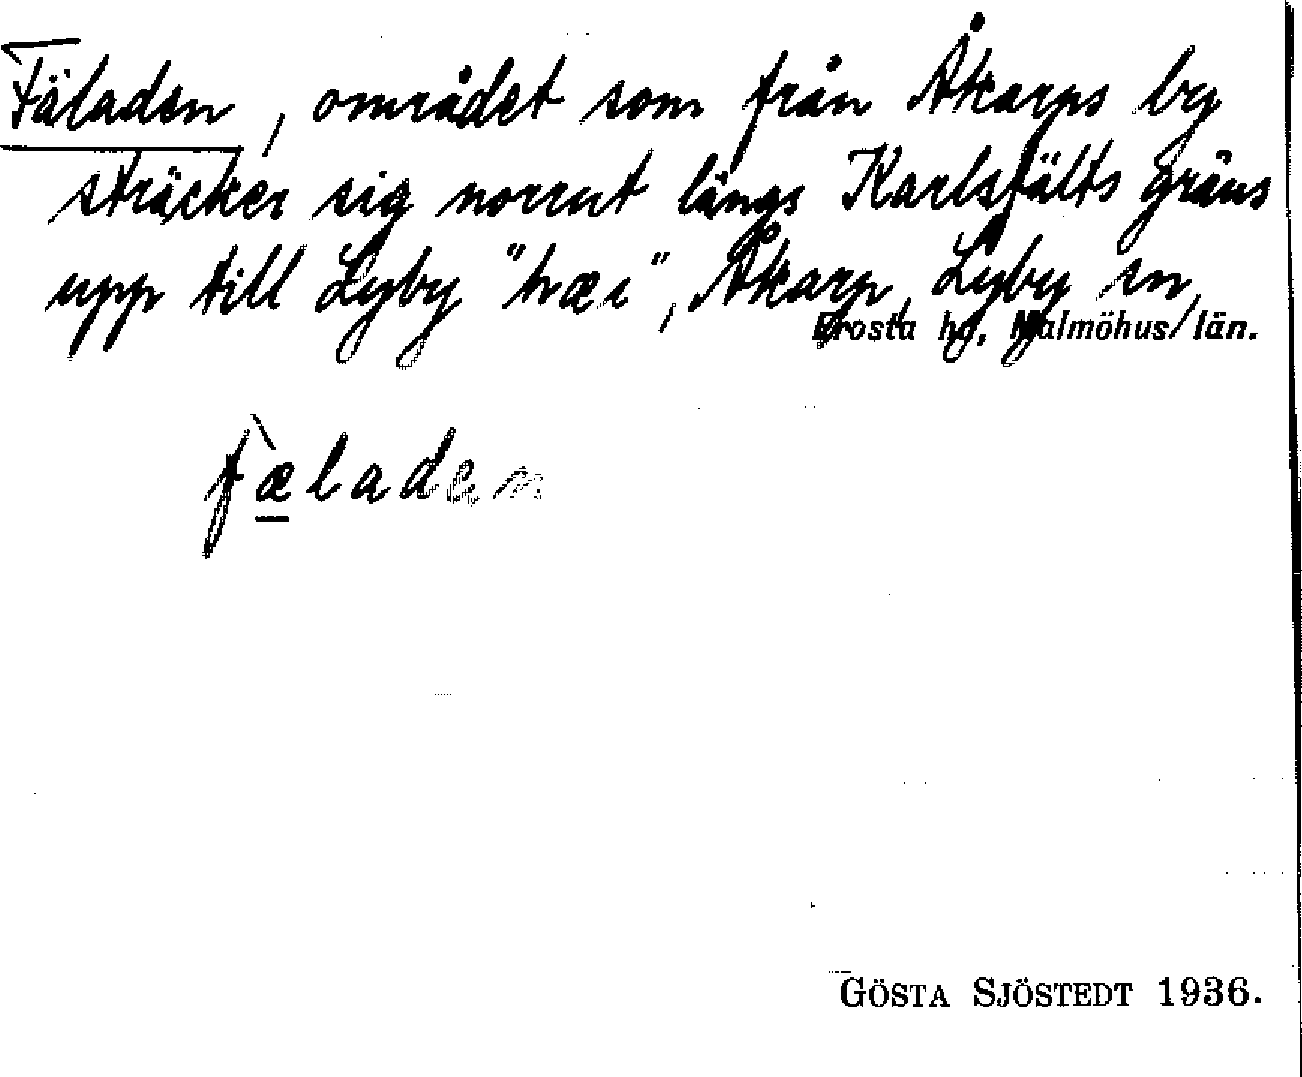 Fäladen, området som från Åkarps by
sträcker sig norrut längs Karlsfälts gräns
upp till Lyby "hæi", Åkarp, Lyby sn,
Frosta hd, Malmöhus län.
fæ̱̀laden
GÖSTA SJÖSTEDT 1936.